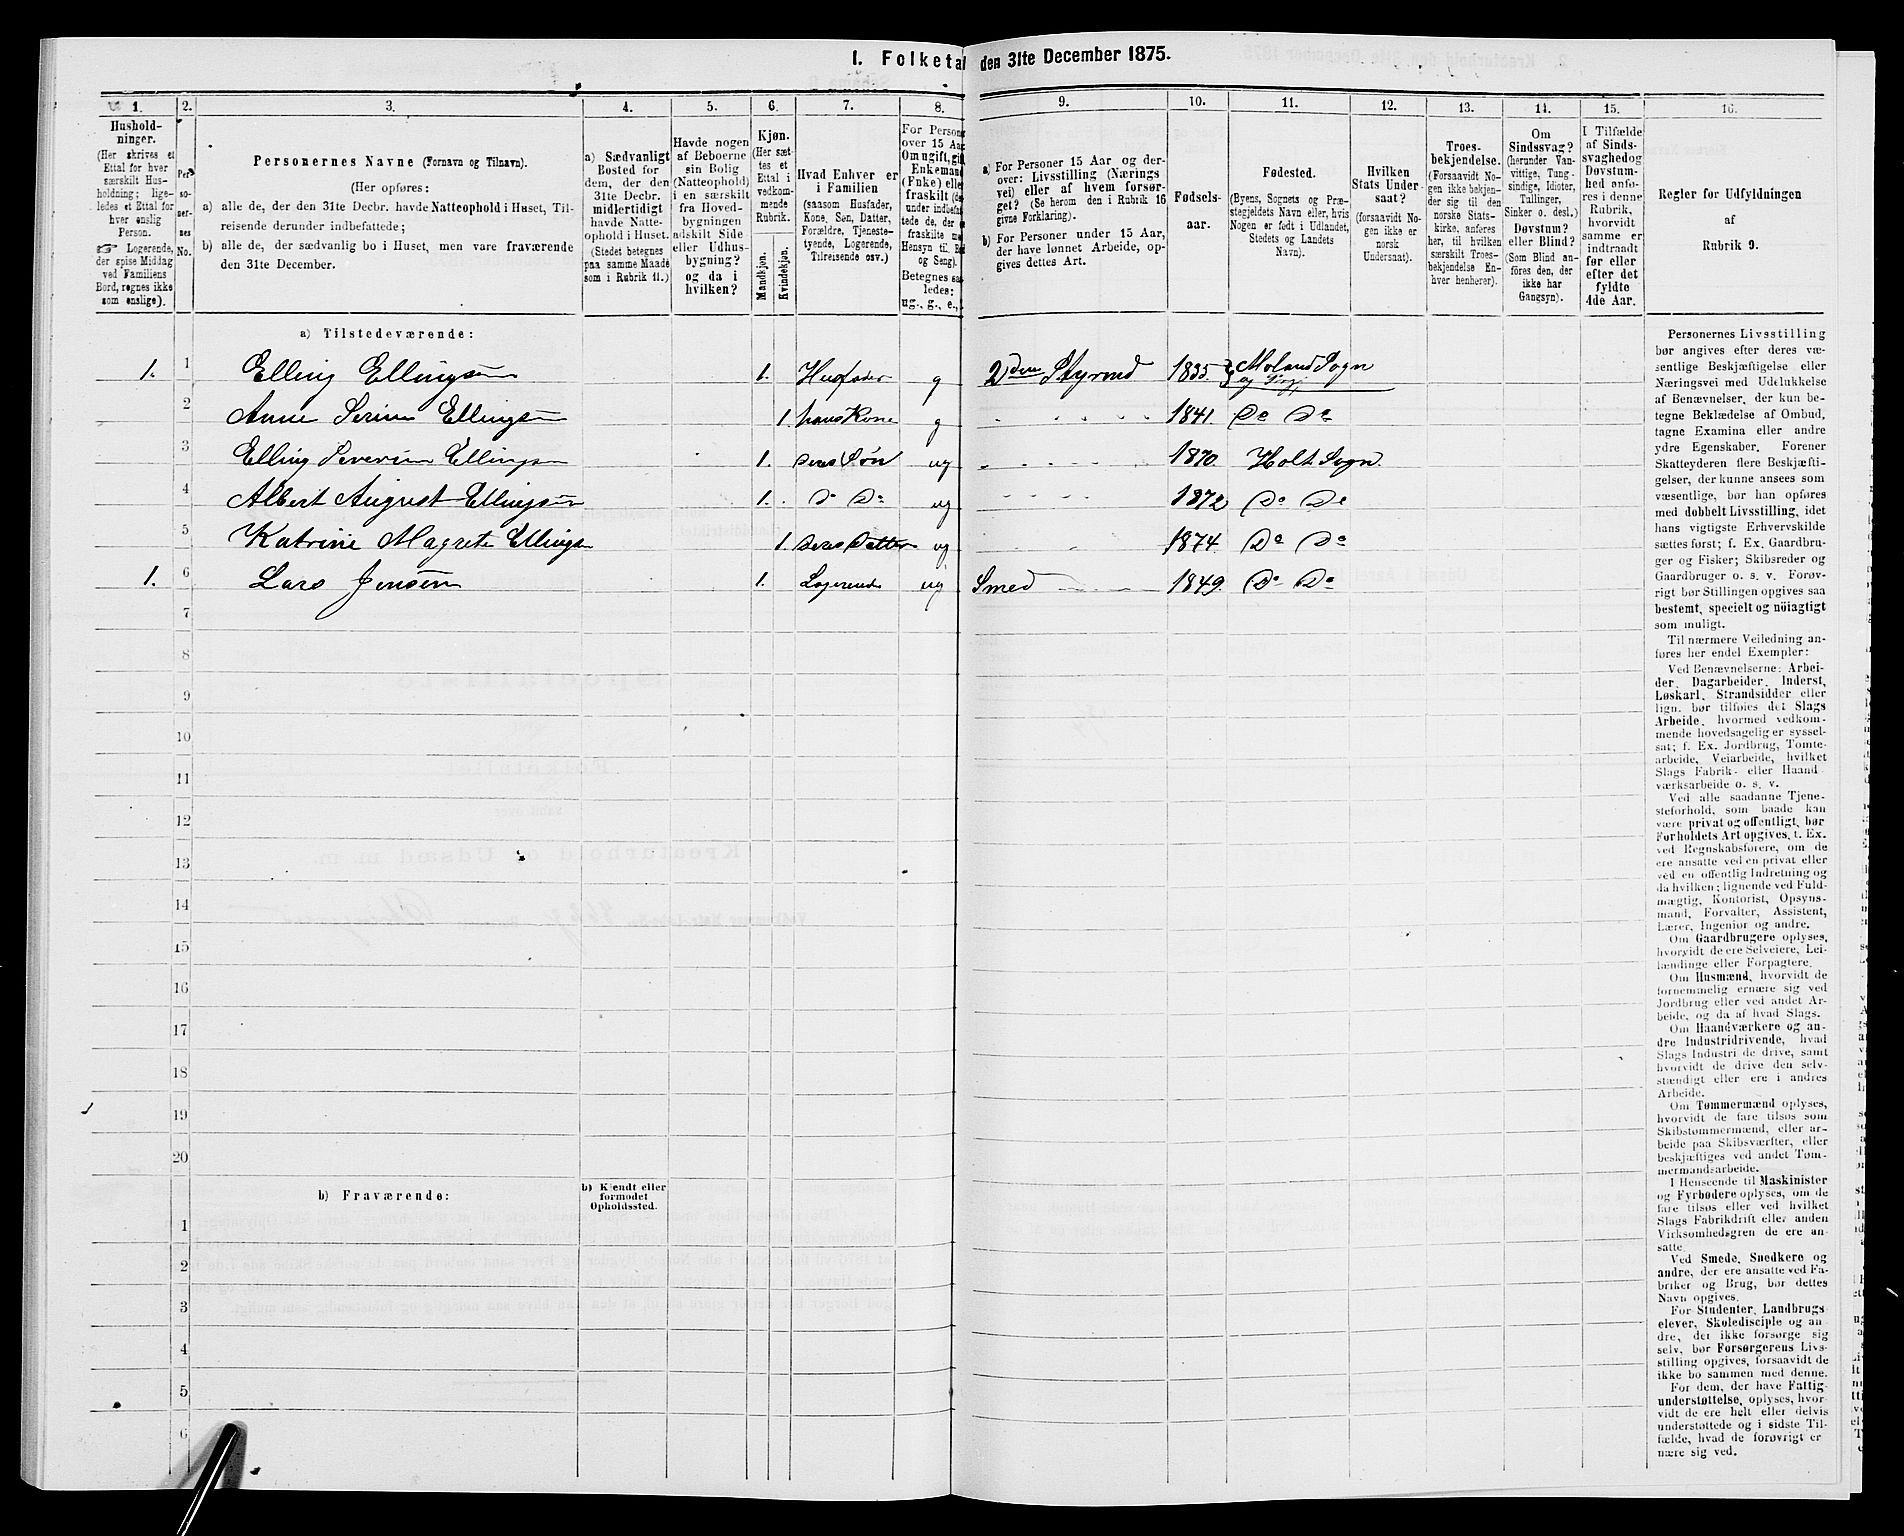 1. Folketal den 31te December 1875.
1. 2. 3. 4. 5. 6. 7. 8. 9. 10. 11. 12. 13. 14. 15. 16.
Hushold-
ninger.
(Her skrives et
Ettal for hver
særskilt Hus-
holdning; lige-
ledes et Ettal for
hver enslig
Person.
☞ Logerende,
der spise Middag
ved Familiens
Bord, regnes ikke
som enslige).
Per-
so-
ner-
nes
No.
Personernes Navne (Fornavn og Tilnavn).
(Her opføres:
a) alle de, der den 31te Decbr. havde Natteophold i Huset, Til-
reisende derunder indbefattede;
b) alle de, der sædvanlig bo i Huset, men vare fraværende
den 31te December.
a) Sædvanligt
Bosted for
dem, der den
31te Decbr.
midlertidigt
havde Natte-
ophold i Huset.
(Stedet betegnes
paa samme Maade
som i Rubrik 11.)
Havde nogen
af Beboerne
sin Bolig
(Natteophold)
i en særskilt
fra Hoved-
bygningen
adskilt Side
eller Udhus-
bygning?
og da i
hvilken?
Kjøn.
(Her sæt-
tes et
Ettal i
vedkom-
mende
Rubrik.
Mandkjøn.
Kvindekjøn.
Hvad Enhver er
i Familien
(saasom Husfader,
Kone, Søn, Datter,
Forældre, Tjeneste-
tyende, Logerende,
Tilreisende osv.)
For Persone
over 15 Aar
Om ugift, gift
Enkemand
(Enke) elle
fraskilt (de
under indbefat
tede de, der e
fraskilte me
Hensyn til. B
og Seng).
Betegnes saa
ledes:
ug., g., e.,
a) For Personer 15 Aar og der-
over: Livsstilling (Nærings
vei) eller af hvem forsør-
get? (Se herom den i Rubrik 16
givne Forklaring).
b) For Personer under 15 Aar,
der have lønnet Arbeide, op-
gives dettes Art.
Fødsels-
aar.
Fødested.
(Byens, Sognets og Præ-
stegjeldets Navn eller, hvis
Nogen er født i Udlandet,
Stedets og Landets
Navn).
Hvilken
Stats Under-
saat?
(forsaavidt No-
gen ikke er
norsk
Undersaat).
Troes-
bekjendelse.
(Forsaavidt No-
gen ikke bekjen-
der sig til den
norske Stats-
kirke, anføres
her, til hvilken
særskilt Troes-
bekjendelse En-
hver henhører).
Om
Sindssvag?
(herunder Van-
vittige, Tung-
sindige, Idioter,
Tallinger,
Sinker o. desl.)
Døvstum?
eller Blind?
(Som Blind an-
føres den, der
ikke har
Gangsyn).
I Tilfælde
af Sinds-
svaghed og
Døvstum-
hed anfø-
res i denne
Rubrik,
hvorvidt
samme er
indtraadt
før eller
efter det
fyldte
4de Aar.
Regler for Udfyldningen
af
Rubrik 9.
a) Tilstedeværende:
1. 1 Elling Ellingsen 1. Husfader g 2den Styrmd 1835. Moland Sogn
2 Anne Serine Ellingsen 1. hans Kone g 1841. Do Do
3 Elling Severin Ellingsen 1. deres Søn ug 1870. Holt Sogn.
4 Albert August Ellingsen 1. Do Do ug 1872 Do Do
5 Katrine Magrete Ellings 1. deres Datter ug 1874 Do Do
1. 6 Lars Jensen 1. Logerende ug Smed 1849. Do Do
7
8
9
10
11
12
13
14
15
16
17
18
19
20
b) Fraværende:
b) Kjendt eller
formodet
Opholdssted.
1
2
3
4
5
6
Personernes Livsstilling
bør angives efter deres væ-
sentlige Beskjæftigelse eller
Næringsvei med Udelukkelse
af Benævnelser, der kun be-
tegne Beklædelse af Ombud,
tagne Examina eller andre
ydre Egenskaber. Forener
Skatteyderen flere Beskjæfti-
gelser, der kunne ansees som
væsentlige, bør han opføres
med dobbelt Livsstilling, idet
hans vigtigste Erhvervskilde
sættes først; f. Ex. Gaardbru-
ger og Fisker; Skibsreder og
Gaardbruger o. s. v. Forøv-
rigt bør Stillingen opgives saa
bestemt, specielt og nöiagtigt
som muligt.
Til nærmere Veiledning an-
føres her endel Exempler:
Ved Benævnelserne: Arbei-
der, Dagarbeider, Inderst,
Løskarl, Strandsidder eller
lign. bør tilføies det Slags
Arbeide, hvormed vedkom-
mende hovedsagelig er syssel-
sat; f. Ex. Jordbrug, Tomte-
arbeide, Veiarbeide, hvilket
Slags Fabrik- eller Haand-
værksarbeide o. s. v.
Ved alle saadanne Tjene-
steforhold, som baade kan
være privat og offentligt, bør
Forholdets Art opgives, t. Ex.
ved Regnskabsførere, om de
ere ansatte ved en privat eller
ved en offentlig Indretning og
da hvilken; lignende ved Fuld-
mægtig, Kontorist, Opsyns-
mand, Forvalter, Assistent,
Lærer, Ingeniør og andre.
Om Gaardbrugere oplyses,
hvorvidt de ere Selveiere, Lei-
lændinge eller Forpagtere.
Om Husmænd, hvorvidt de
fornemmelig ernære sig ved
Jordbrug eller ved andet Ar-
beide, og da af hvad Slags.
Om Haandværkere og an-
dre Industridrivende, hvad
Slags Industri de drive, samt
hvorvidt de drive den selv-
stændigt eller ere i andres
Arbeide.
Om Tømmermænd oplyses,
hvorvidt de fare tilsøs som
Skibstømmermænd, eller ar-
beide paa Skibsværfter, eller
beskjæftiges ved andet Tøm-
mermandsarbeide.
I Henseende til Maskinister
og Fyrbødere oplyses, om de
fare tilsøs eller ved hvilket
Slags Fabrikdrift eller anden
Virksomhedsgren de ere an-
satte.
Ved Smede, Snedkere og
andre, der ere ansatte ved Fa-
briker og Brug, bør dettes
Navn opgives.
For Studenter, Landbrugs
elever, Skoledisciple og an-
dre, der ikke forsørge sig
selv, bør Forsørgerens Livs-
stilling opgives, forsaavidt de
ikke bo sammen med denne.
For dem, der have Fattig-
understøttelse, oplyses, hvor-
vidt de ere helt eller delvis
understøttede og i sidste Til-
fælde, hvad de forøvrigt er
nære sig ved.